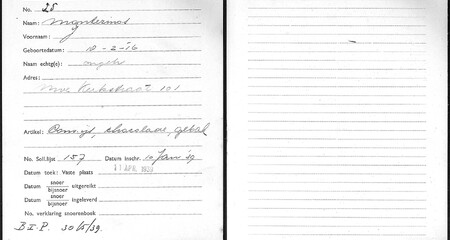 No. 28
Naam:
Voornaam:
Geboortedatum: 18-2-'16
Naam echtg(e): ongeh
Adres:
Kerkstraat 101
Artikel: Cons.ijs, chocolade, gebak
No. Soll.lijst 157 Datum inschr. 10 Jan '39
Datum toek: Vaste plaats 11 APR. 1939
Datum snoer bijsnoer uitgereikt
Datum snoer bijsnoer ingeleverd
No. verklaring snoerenboek
B II P. 30/5/39.